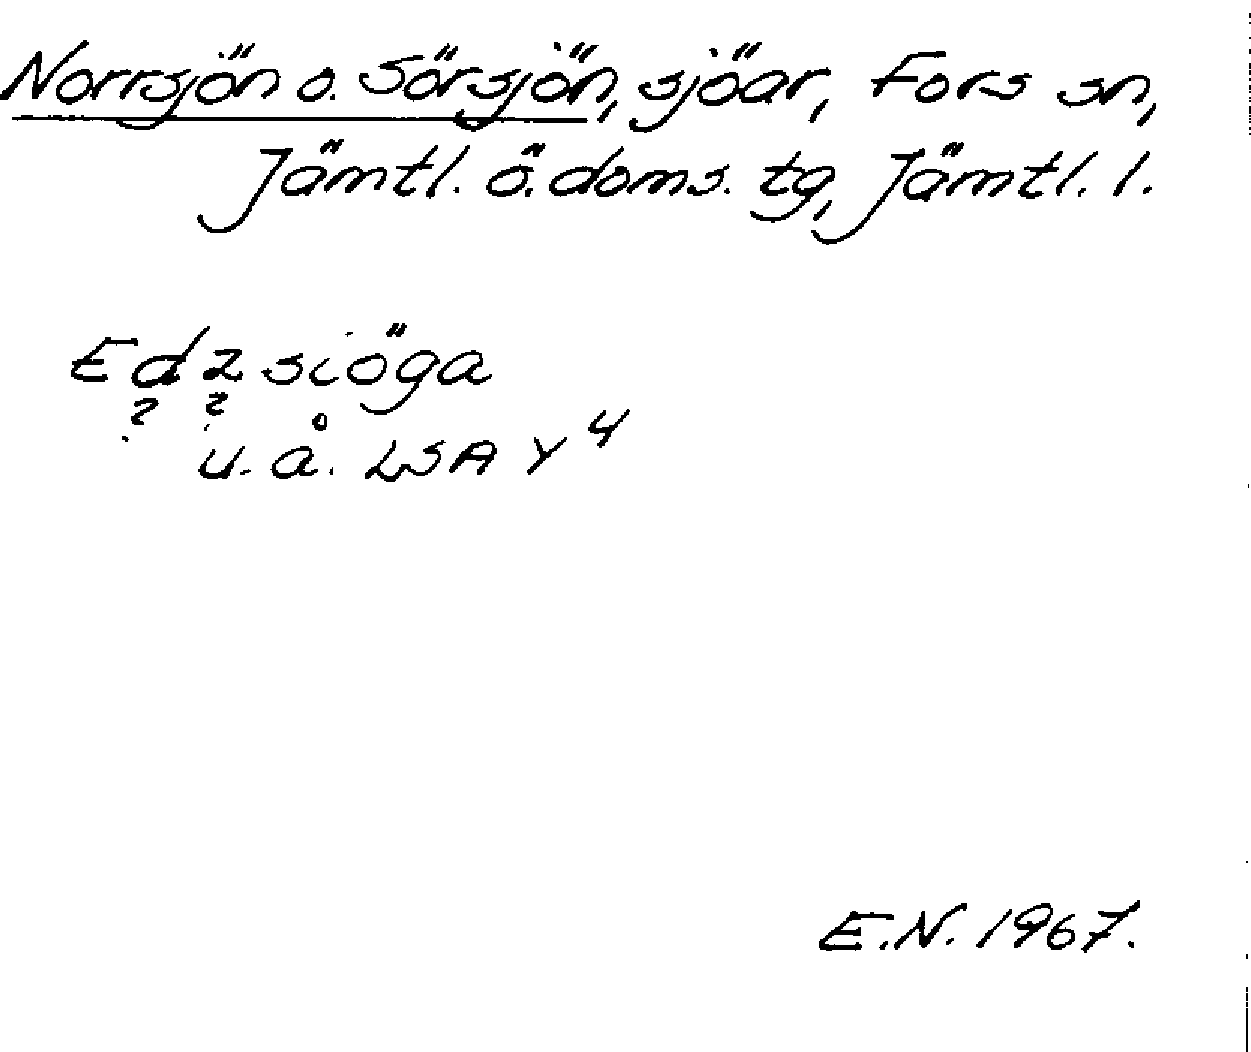 Norrsjön o. Sörsjön, sjöar, Fors sn,
Jämtl. ö. doms. tg, Jämtl. l.
Edzsiöga
? ?
u. å. LSA Y 4
E.N. 1967.